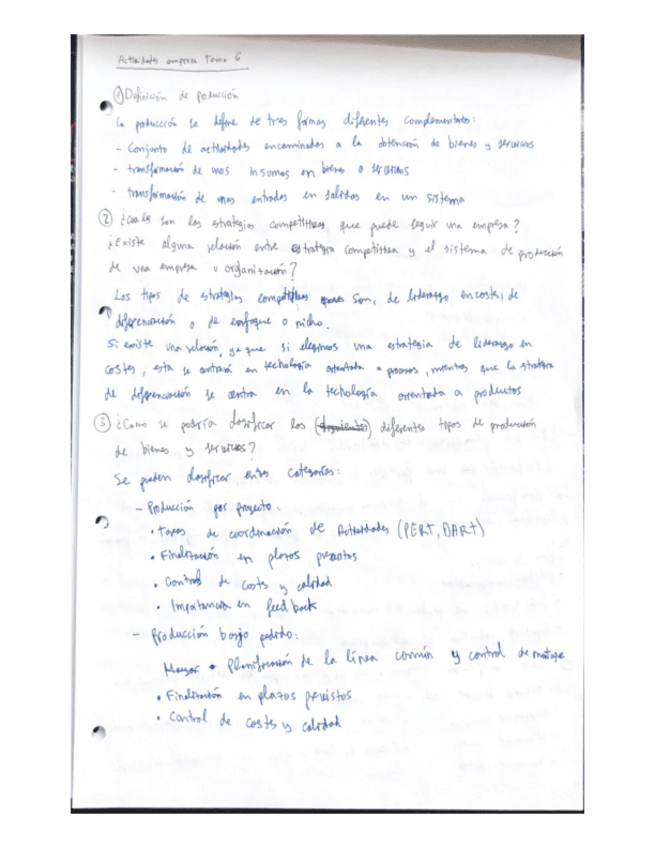 Actividades empresa Tema 6
① Definición de producción
La producción se define de tres formas diferentes complementarias:
- Conjunto de actividades encaminadas a la obtención de bienes y servicios
- transformación de unos insumos en bienes o servicios
- transformación de unas entradas en salidas en un sistema
② ¿Cuales son las estrategias competitivas que puede seguir una empresa?
¿Existe alguna relación entre estrategia competitiva y el sistema de producción
de una empresa u organización?
Los tipos de estrategias competitivas son, de liderazgo en coste, de
diferenciación o de enfoque o nicho.
Si existe una relación, ya que si elegimos una estrategia de liderazgo en
costes, esta se centrará en techología orientada a procesos, mientras que la
de diferenciación se centra en la techología orientada a productos
③ ¿Como se podría clasificar los diferentes tipos de producción
de bienes y servicios?
Se pueden clasificar categorías:
- Producción por proyecto.
• Tareas de coordinación de Actividades (PERT, DART)
• Finalización en plazos previstos
• Control de costs y calidad
• Importancia en feed back
- Producción bajo pedido:
Mayor • Planificación de la línea común y control de
• Finalización en plazos previstos
• Control de costs y calidad